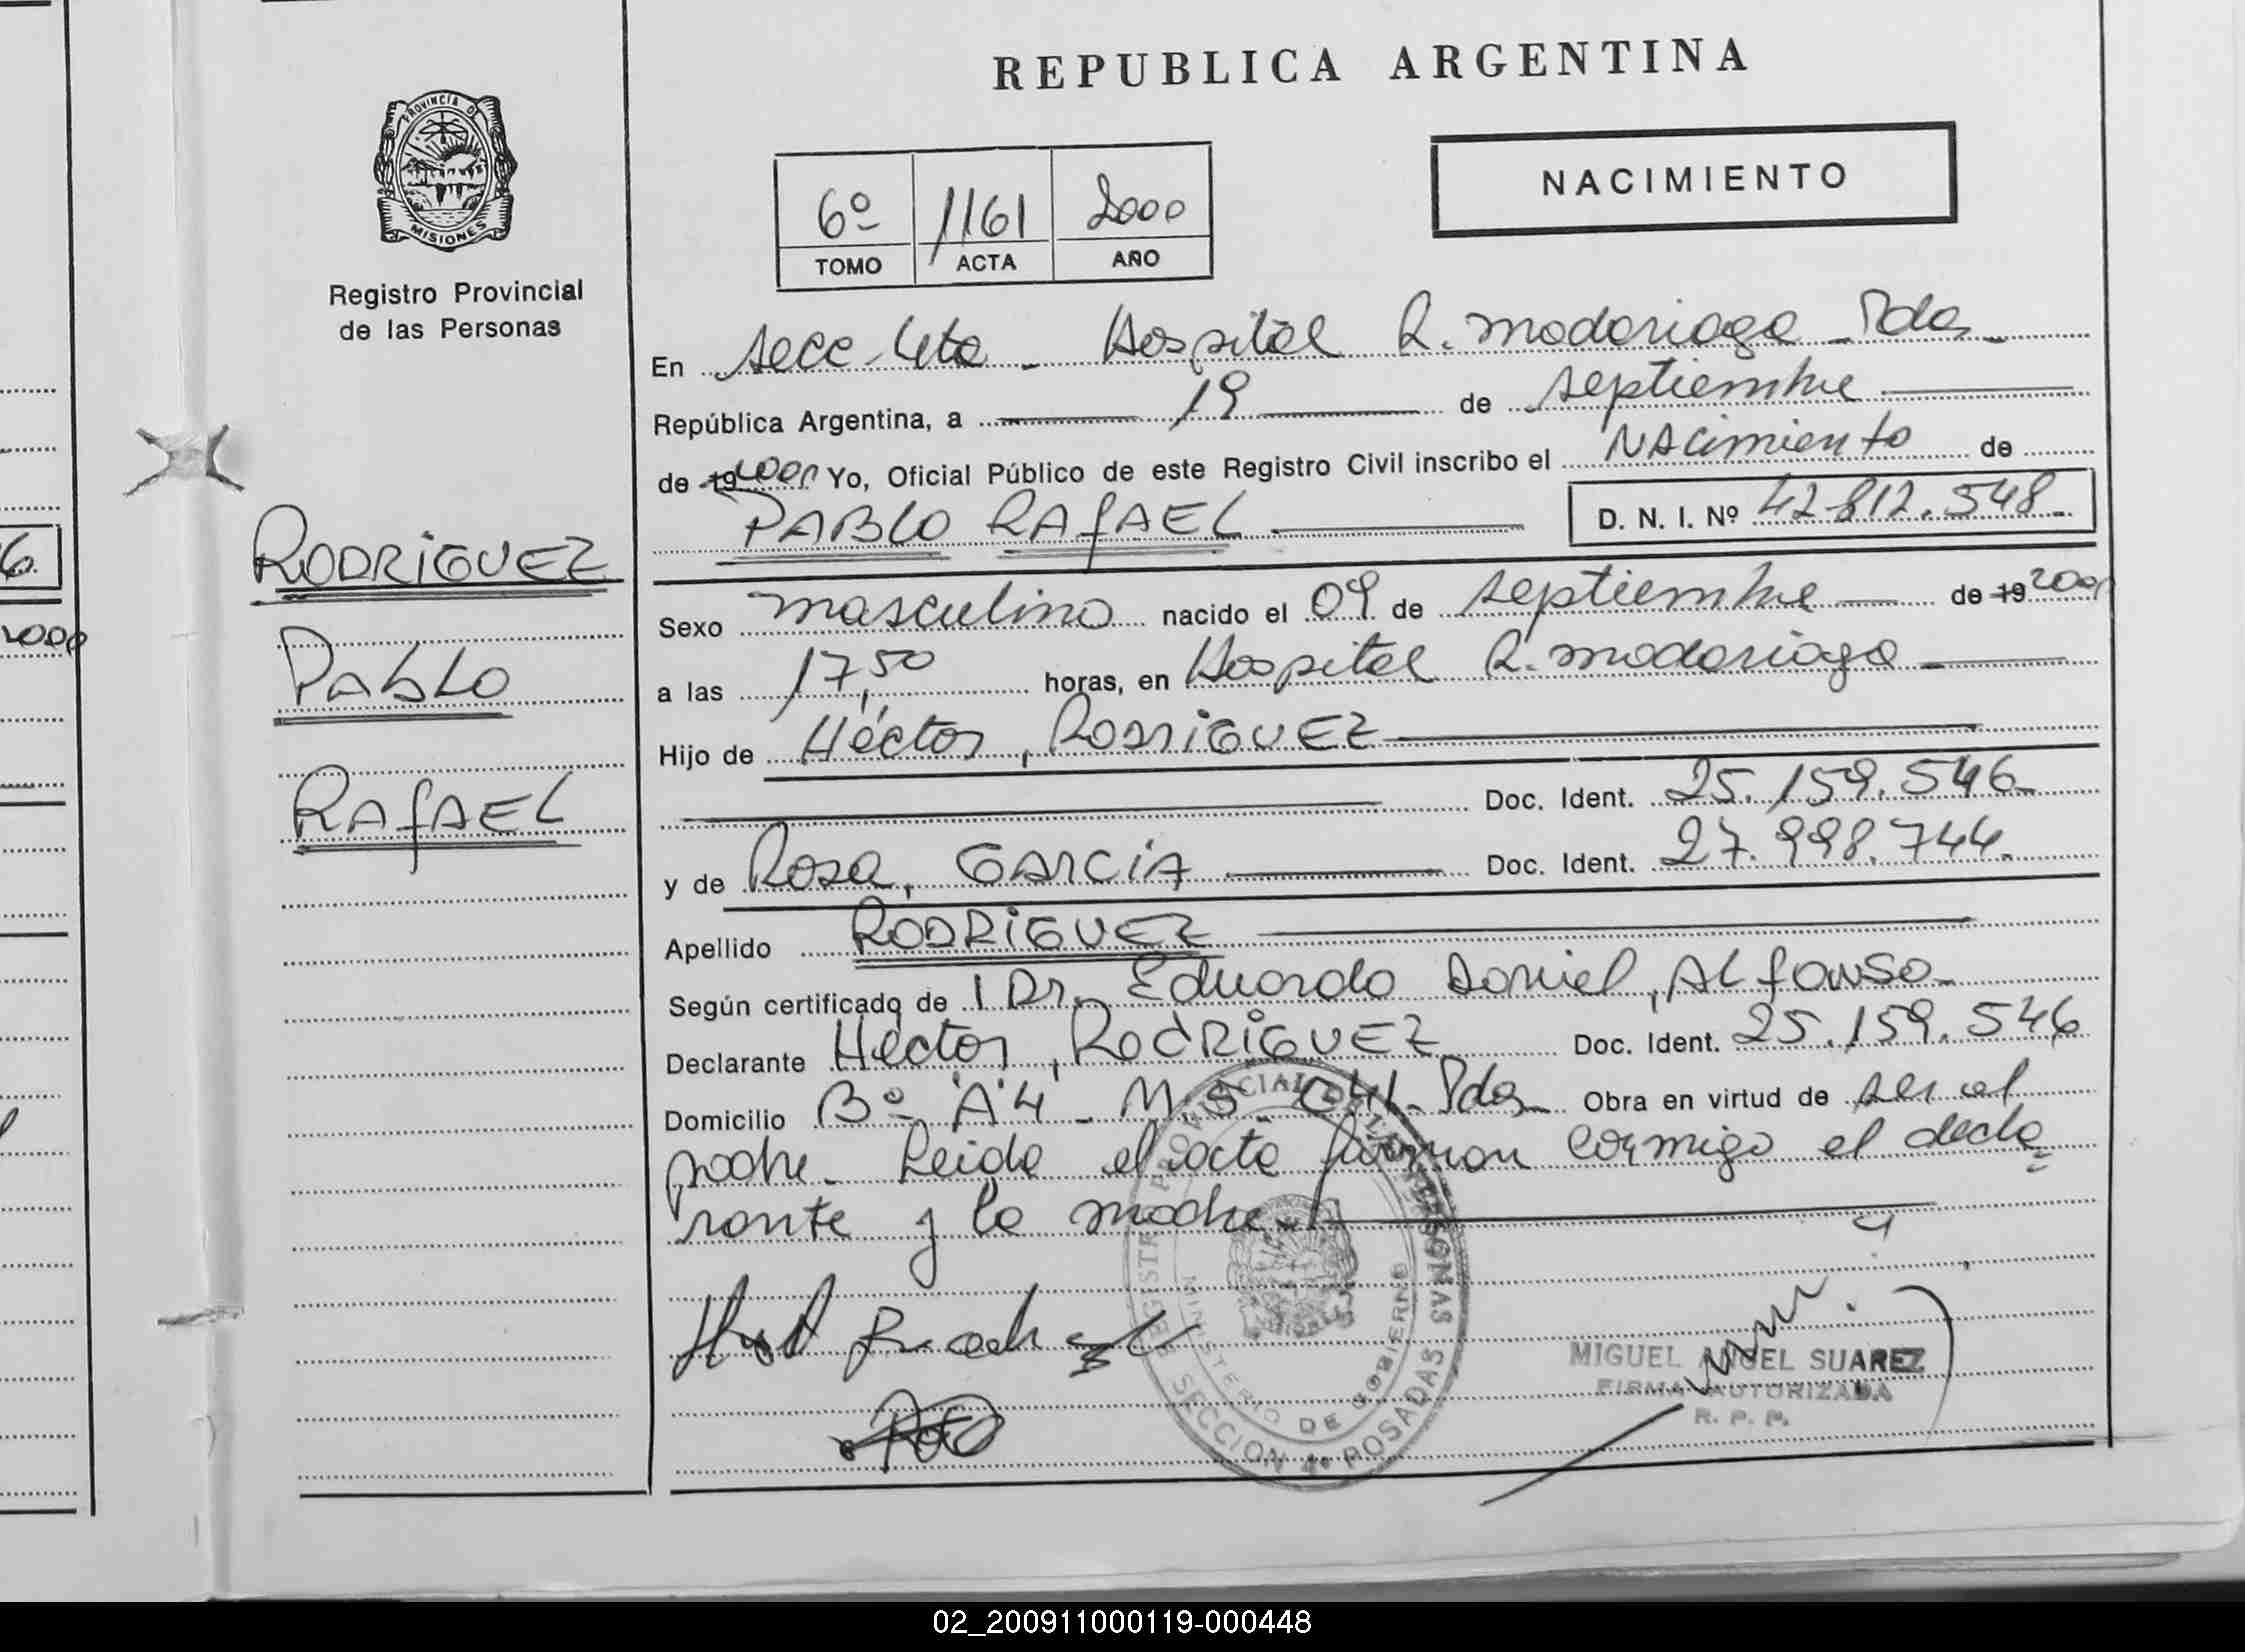 REPUBLICA ARGENTINA
PROVINCIA DE
MISIONES
Registro Provincial
de las Personas
6º 1161 2000
TOMO ACTA AÑO
NACIMIENTO
En Secc. 4ta - Hospital R. Madariaga - Pdas -
República Argentina, a 19 de septiembre
de 19 2000 Yo, Oficial Público de este Registro Civil inscribo el NAcimiento de
PABLO RAfAEL D. N. I. Nº 42.812.548.-
RODRIGUEZ
Pablo
RAfAEL
Sexo masculino nacido el 09 de septiembre de 19 2000
a las 17,50 horas, en Hospital R. Madariaga
Hijo de Héctor, RODRIGUEZ
Doc. Ident. 25.159.546-
y de Rosa, GARCIA Doc. Ident. 27.998.744.
Apellido RODRIGUEZ
Según certificado de Dr. Eduardo Daniel, Alfonso-
Declarante Héctor, RODRIGUEZ Doc. Ident. 25.159.546
Domicilio Bº "A 4" - Pdas - Obra en virtud de ser el
padre. Leida el acta firman conmigo el decla=
rante y la madre.-
REGISTRO PROVINCIAL DE LAS PERSONAS
MINISTERIO DE GOBIERNO
SECCION 4a POSADAS
MIGUEL ANGEL SUAREZ
FIRMA AUTORIZADA
R. P. P.
6.
2000
02_200911000119-000448